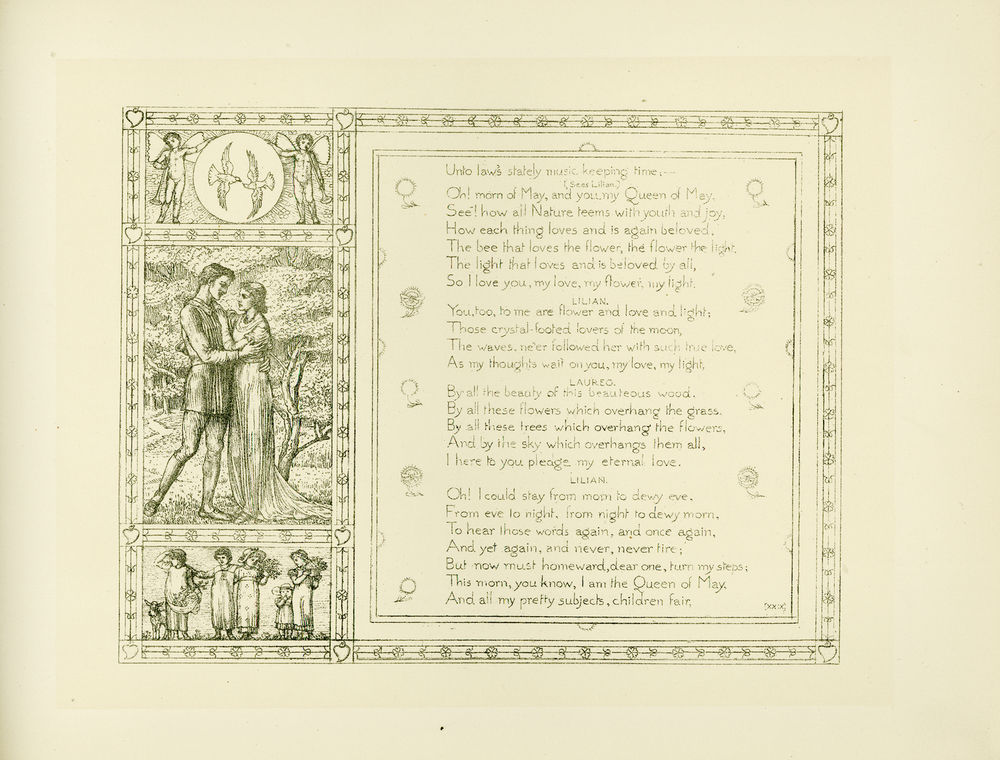 Unto law's stately music keeping time;—
(Sees Lilian.)
Oh! morn of May, and you, my Queen of May,
See! how all Nature teems with youth and joy,
How each thing loves and is again beloved,
The bee that loves the flower, the flower the light,
The light that loves and is beloved by all,
So I love you, my love, my flower, my light.
LILIAN.
You, too, to me are flower and love and light;
Those crystal-footed lovers of the moon,
The waves, ne'er followed her with such true love,
As my thoughts wait on you, my love, my light.
LAUREO.
By all the beauty of this beauteous wood.
By all these flowers which overhang the grass.
By all these trees which overhang the flowers,
And by the sky which overhangs them all,
I here to you pledge my eternal love.
LILIAN.
Oh! I could stay from morn to dewy eve,
From eve to night, from night to dewy morn,
To hear those words again, and once again,
And yet again, and never, never tire;
But now must homeward, dear one, turn my steps;
This morn, you know, I am the Queen of May,
And all my pretty subjects, children fair,
[XXIX]